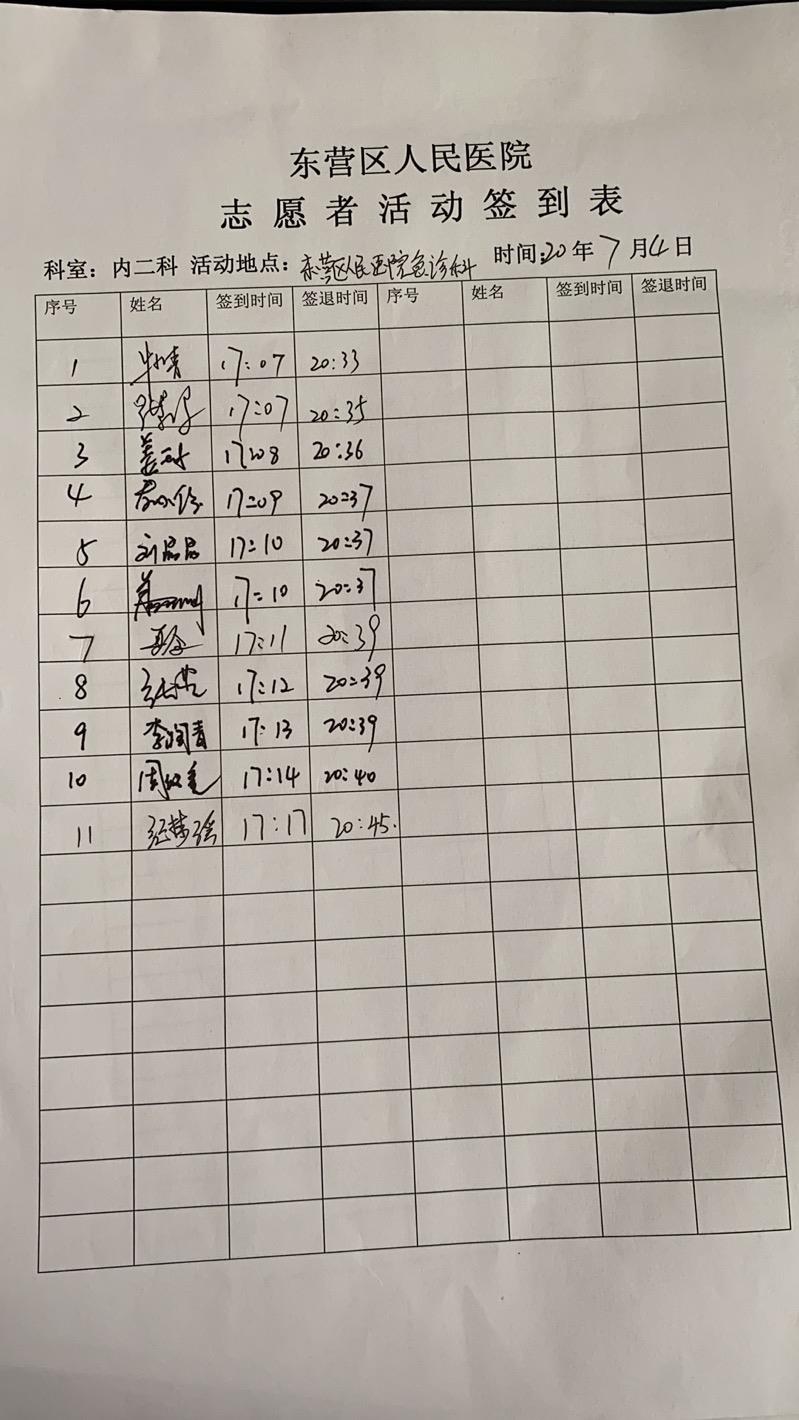 东营区人民医院
志愿者活动签到表
科室：内二科 活动地点：东营区人民医院急诊科 时间：20年7月4日
序号 姓名 签到时间 签退时间 序号 姓名 签到时间 签退时间
1 17:07 20:33
2 17:07 20:35
3 17:08 20:36
4 17:09 20:37
5 刘晶晶 17:10 20:37
6 17:10 20:37
7 17:11 20:39
8 17:12 20:39
9 李润青 17:13 20:39
10 17:14 20:40
11 17:17 20:45.